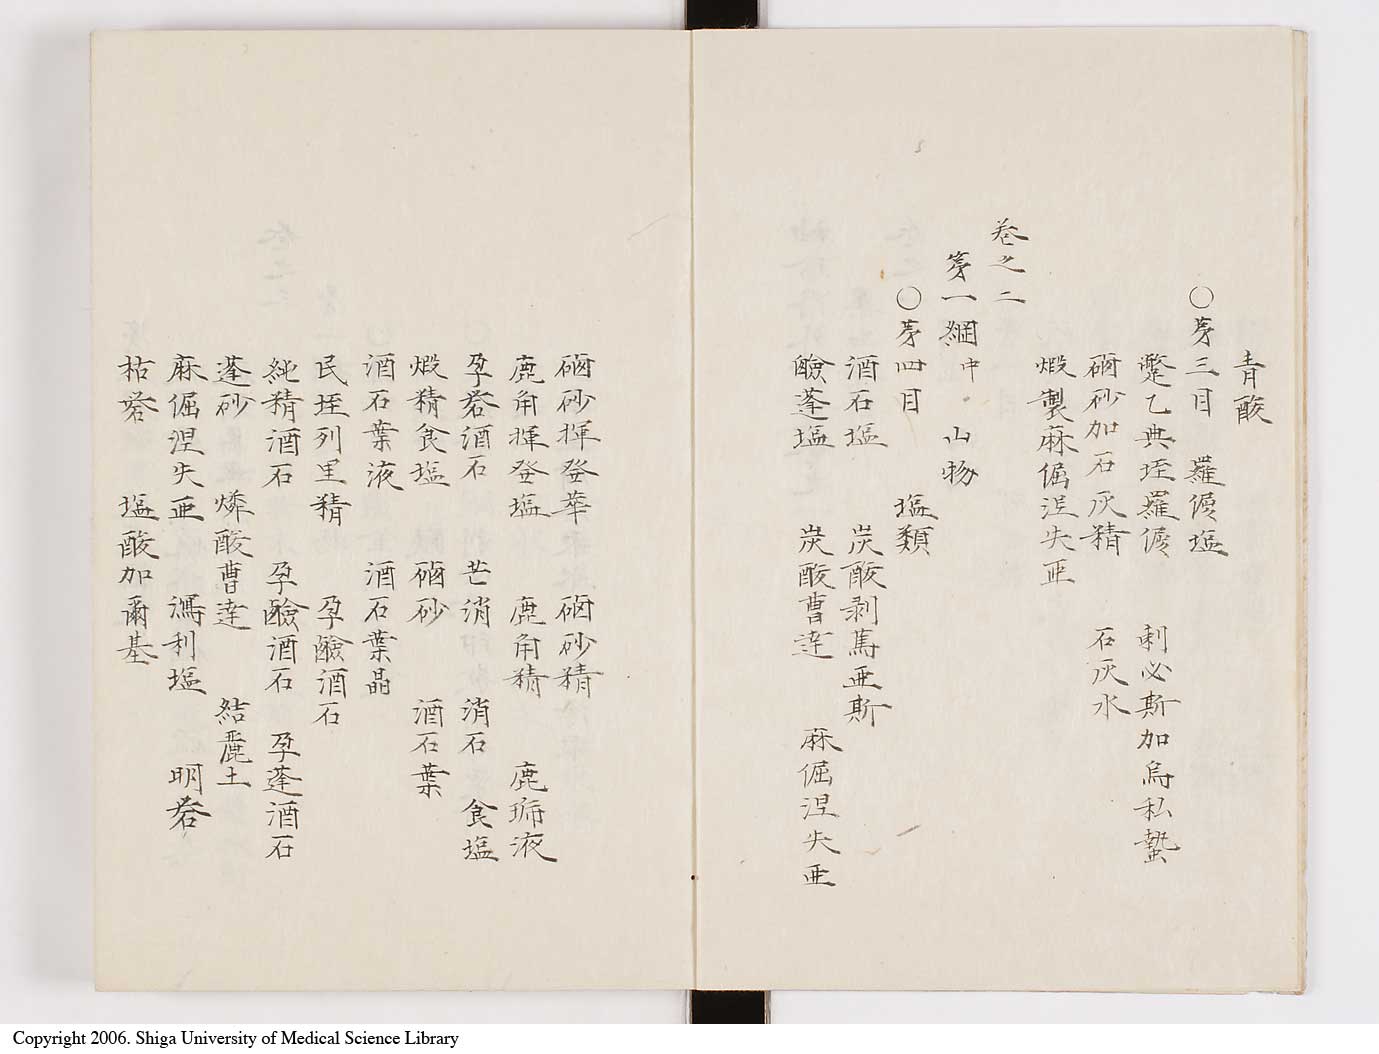 青酸
〇第三目　羅傆塩
蹩乙典垤羅傆　刺必斯加烏私蟄
磠砂加石灰精　石灰水
煆製麻倔涅失亜
巻之二
第一綱中　山物
〇第四目　塩類
酒石塩　炭酸剥篤亜斯
鹸蓬塩　炭酸曹達　麻倔涅失亜
磠砂揮発華　磠砂精
鹿角揮発塩　鹿角精　鹿琊液
孕礬酒石　芒消　消石　食塩
煆精食塩　磠砂　酒石葉
酒石葉液　酒石葉晶
民垤列里精　孕鹸酒石
純精酒石　孕鹸酒石　孕蓬酒石
蓬砂　燐酸曹達　結麗土
麻倔涅失亜　瀉利塩　明礬
枯礬　塩酸加爾基
Copyright 2006. Shiga University of Medical Science Library